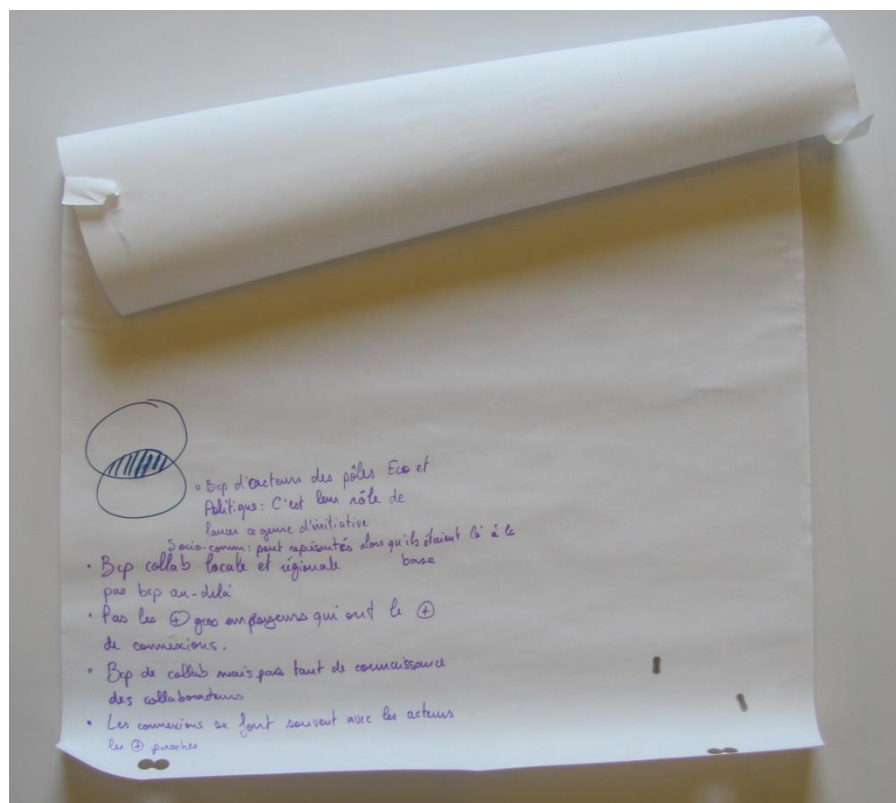 • Bcp d'acteurs des pôles Eco et
Politique : C'est leur rôle de
lancer ce genre d'initiative
Socio-comm : peut représentés alors qu'ils étaient là à la
base
• Bcp collab locale et régionale
pas bcp au-delà
• Pas les ⊕ gros employeurs qui ont le ⊕
de connexions.
• Bcp de collab mais pas tant de connaissance
des collaborateurs
• Les connexions se font souvent avec les acteurs
les ⊕ proches